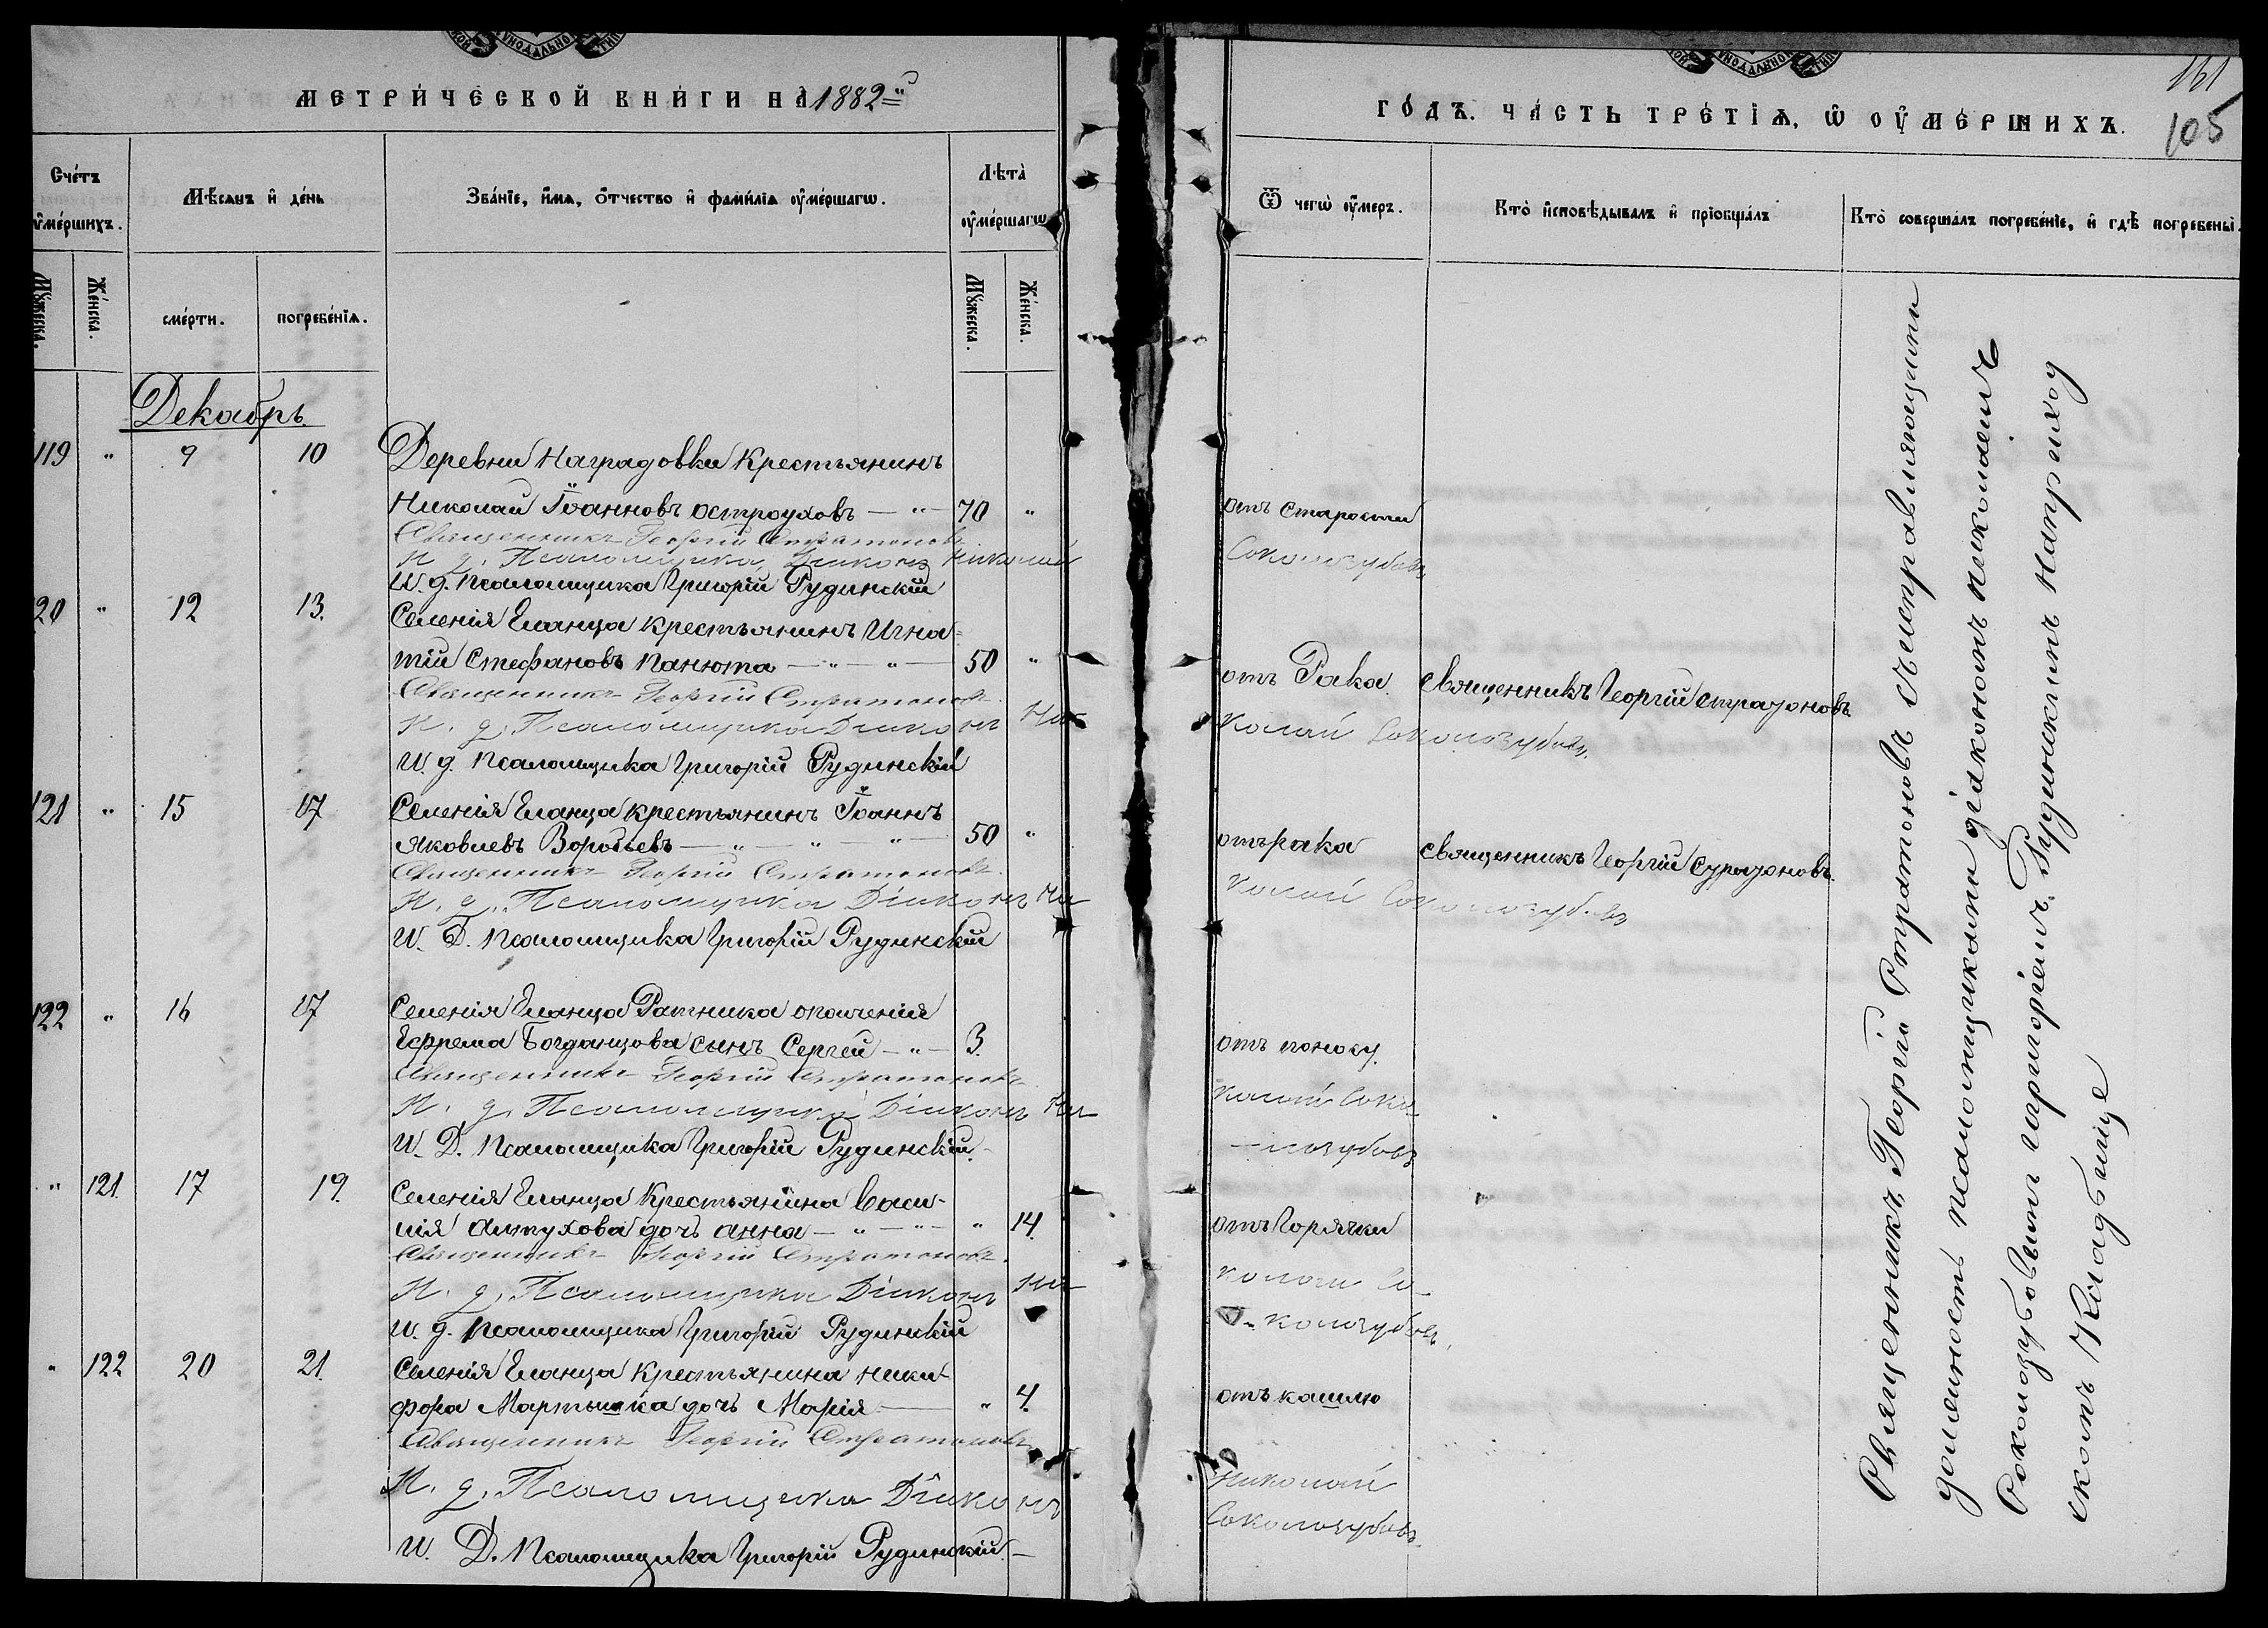 МЕТРИЧЕСКОЙ КНИГИ НА 1882й
Счетъ умершихъ.
Мѣсяцъ и день
Званіе, имя, отчество и фамилія умершагѡ.
Лѣта умершагѡ
Мужеска.
Женска.
смерти.
погребенія.
Мужеска.
Женска.
Декабрь
119 " 9 10 Деревни Наградовки Крестьянинъ
Николай Іоанновъ Остроуховъ — " — 70 "
Священникъ Георгій Стратоновъ
И. д. Псаломщика Діаконъ Николай
И. д. Псаломщика Григорій Рудинскій
20 " 12 13. Селенія Еланца крестьянинъ Игна=
тій Стефановъ Панюта — " — " — 50 "
Священникъ Георгій Стратоновъ
И. д. Псаломщика Діаконъ Ни
И. д. Псаломщика Григорій Рудинскій
121 " 15 17 Селенія Еланца крестьянинъ Іоаннъ
Яковлевъ Воробьевъ — " — " — " — 50 "
Священникъ Георгій Стратоновъ.
И. д. Псаломщика Діаконъ Ни
И. Д. Псаломщика Григорій Рудинскій
122 " 16 17 Селенія Еланца Ратника ополченія
Ефрема Богданцова сынъ Сергей — " — 3.
Священникъ Георгій Стратоновъ
И. д. Псаломщика Діаконъ Ни
И. Д. Псаломщика Григорій Рудинскій.
" 121 17 19. Селенія Еланца Крестьянина Васи-
лія Алтухова дочь Анна — " — " — " 14.
Священникъ Георгій Стратоновъ.
И. д. Псаломщика Діаконъ Ни
И. д. Псаломщика Григорій Рудинскій
" 122 20 21. Селенія Еланца Крестьянина Ники-
фора Мартынка дочь Марія — " 4.
Священникъ Георгій Стратоновъ
И. д. Псаломщика Діаконъ
И. Д. Псаломщика Григорій Рудинскій. —
161
ГОДЪ. ЧАСТЬ ТРЕТІЯ, Ѡ УМЕРШИХЪ.
105
Ѿ чегѡ умеръ.
Кто исповѣдывалъ и пріобщалъ
Кто совершалъ погребеніе, и гдѣ погребены.
отъ старости
Соколозубовъ
отъ Рака. Священникъ Георгій Стратоновъ.
колай Соколозубовъ.
отъ рака Священникъ Георгій Стратоновъ.
колай Соколозубовъ
отъ поносу.
колай Соко-
-лозубовъ
отъ Горячки
колай Со-
-колозубовъ.
отъ кашлю
Николай
Соколозубовъ.
Священникъ Георгій Стратоновъ съ исправляющими
должность псаломщиками діакономъ Николаемъ
Соколозубовымъ и Григоріемъ Рудинскимъ на приход
скомъ Кладбище